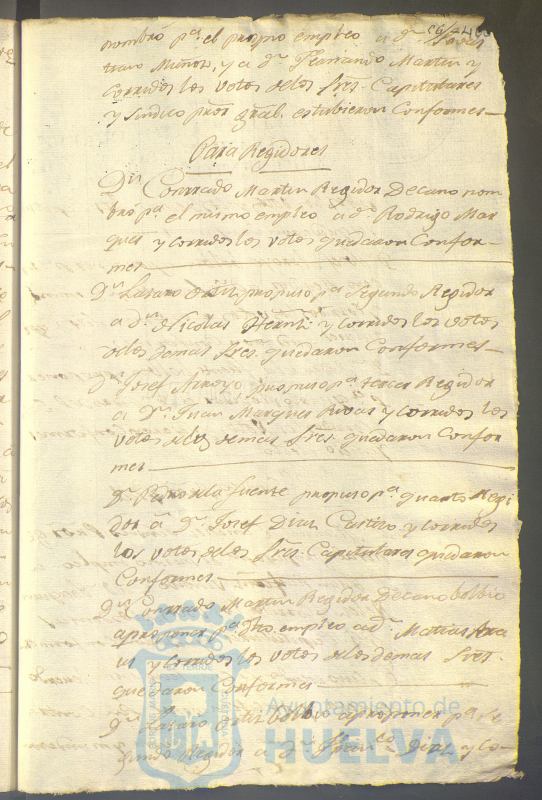 nombró pª. el propio empleo a dn.
Muñoz, y a dn. Fernando Martin y
Corridos los votos de los Sres. Capitulares
y Sindico pror. gral. estubieron Conformes
Para Regidores
Dn. Conrrado Martin Regidor Decano nom
bró pª. el mismo empleo a dn. Rodrigo Mar
ques y corridos los votos quedaron Confor-
mes
Dn. Lazaro Ortiz propuso pª. Segundo Regidor
a dn. Nicolas Hernz. y corridos los votos
de los demas Sres. quedaron Conformes
Dn. Josef Arroyo propuso pª. tercer Regidor
a Dn. Juan Marques Rivas y corridos los
votos de los demas Sres. quedaron Confor
mes
Dn. Pedro de la Fuente propuso pª. quarto Regi
dor a Dn. Josef Diaz Castro y corridos
los votos de los Sres. Capitulares quedaron
Conformes
Dn. Conrrado Martin Regidor Decano bolbio
a proponer pª. dho. empleo a dn. Matias
y corridos los votos de los demas Sres.
quedaron Conformes
Dn. Lazaro Ortiz bolbio a proponer pª. Se
gundo Regidor a dn. Franco. Diaz y Co-
Ayuntamiento de
HUELVA